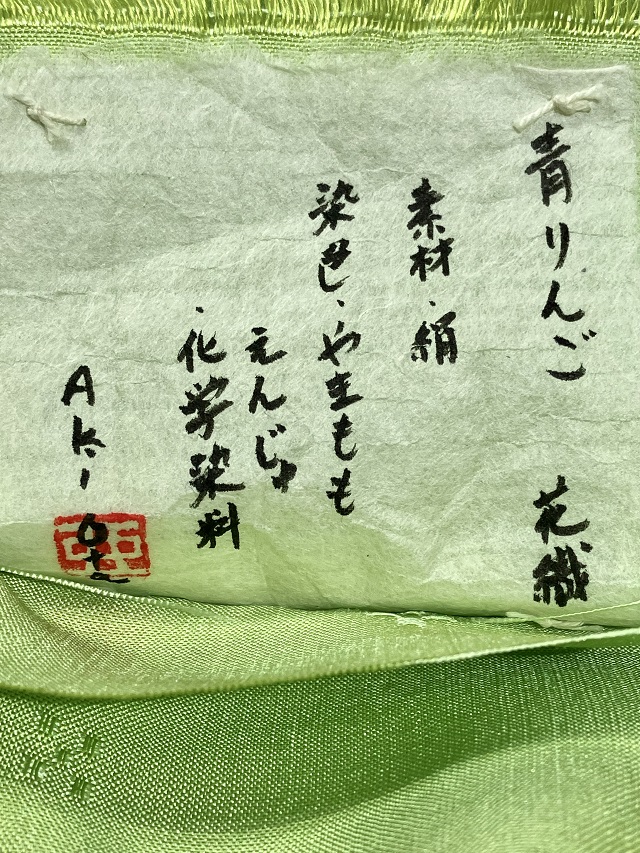 青りんご 花織
素材・絹
染め・やまもも
えんじゅ
・化学染料
Aki